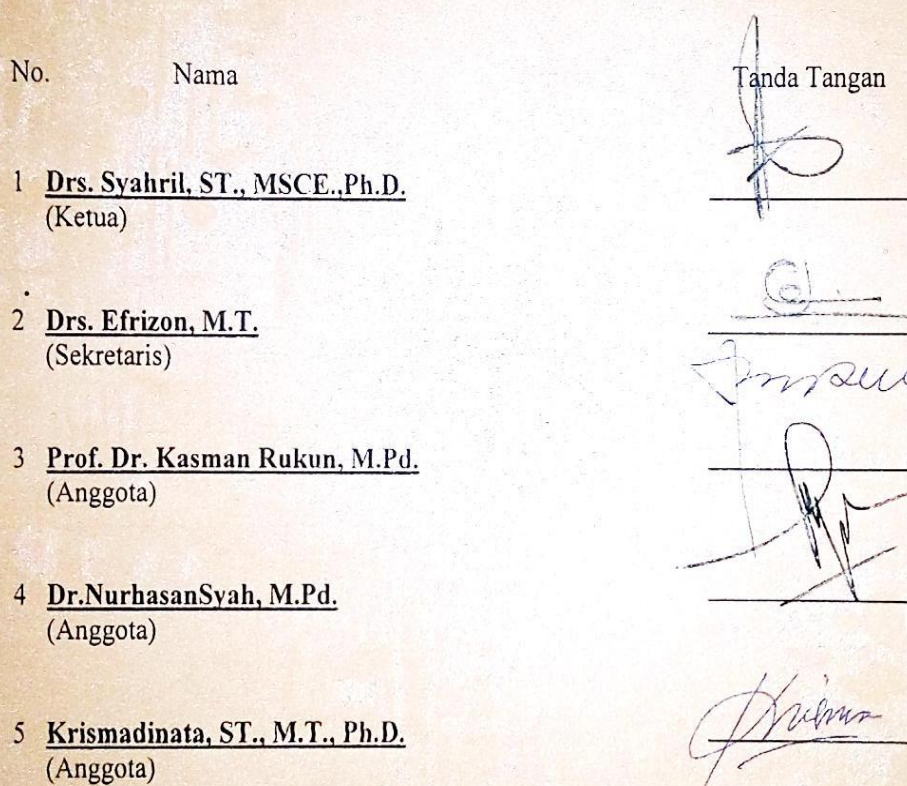 No. Nama Tanda Tangan
1 Drs. Syahril, ST., MSCE.,Ph.D.
(Ketua)
2 Drs. Efrizon, M.T.
(Sekretaris)
3 Prof. Dr. Kasman Rukun, M.Pd.
(Anggota)
4 Dr.NurhasanSyah, M.Pd.
(Anggota)
5 Krismadinata, ST., M.T., Ph.D.
(Anggota)